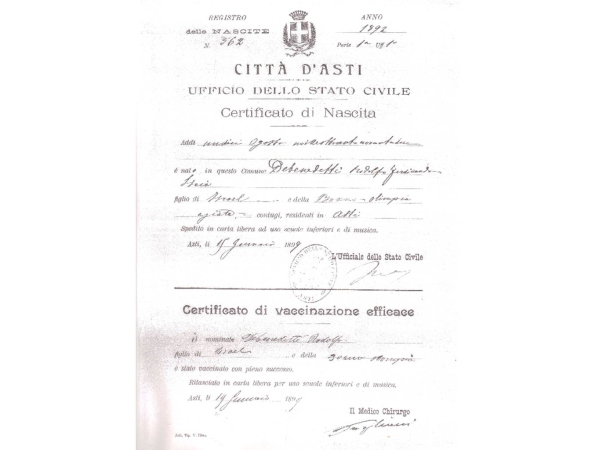 REGISTRO
delle NASCITE
N. 362
ANNO
1892
Parte 1ª
CITTÀ D'ASTI
UFFICIO DELLO STATO CIVILE
Certificato di Nascita
Addì undici Agosto milleottocentonovantadue
è nato in questo Comune Debenedetti Rodolfo Ferdinando
figlio di Israel e della Olimpia
coniugi, residenti in Asti
Spedito in carta libera ad uso scuole inferiori e di musica.
Asti, li 15 Gennaio 1899
L'Ufficiale dello Stato Civile
Certificato di vaccinazione efficace
il nominato Debenedetti Rodolfo
figlio di Israel e della Olimpia
è stato vaccinato con pieno successo.
Rilasciato in carta libera per uso scuole inferiori e di musica.
Asti, li 14 Gennaio 1899
Il Medico Chirurgo
Asti, Tip. V.